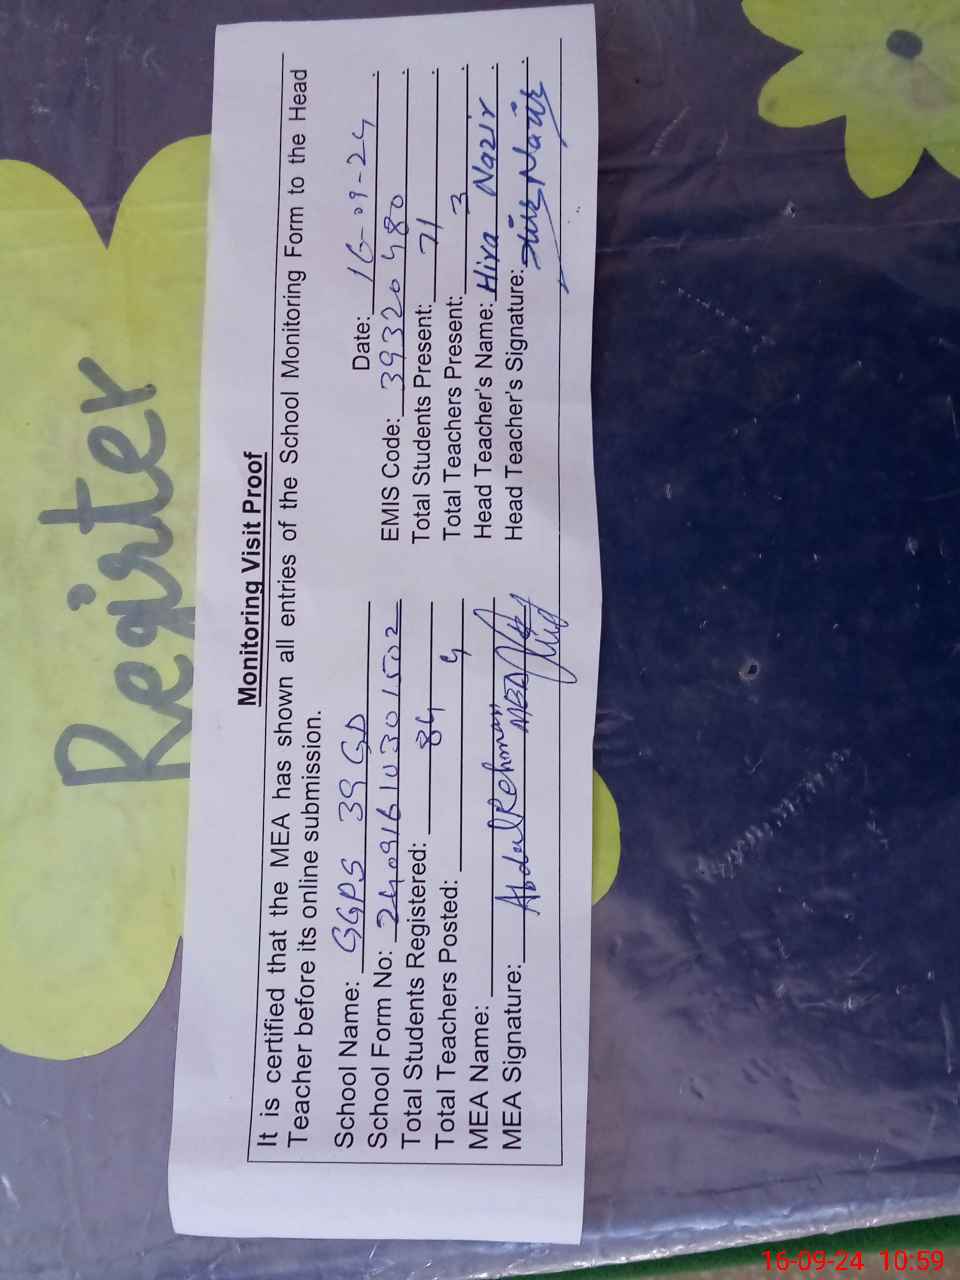 Regirter
Monitoring Visit Proof
It is certified that the MEA has shown all entries of the School Monitoring Form to the Head
Teacher before its online submission.
Date: 16-09-24
School Name: GGPS 39 GD
EMIS Code: 39320480
School Form No: 24091610301502
Total Students Present: 71
Total Students Registered: 84
Total Teachers Present: 3
Total Teachers Posted: 4
Head Teacher's Name: Hira Nazir
MEA Name: Abdul Rehman
Head Teacher's Signature: Hira Nazir
MEA Signature:
16-09-24 10:59